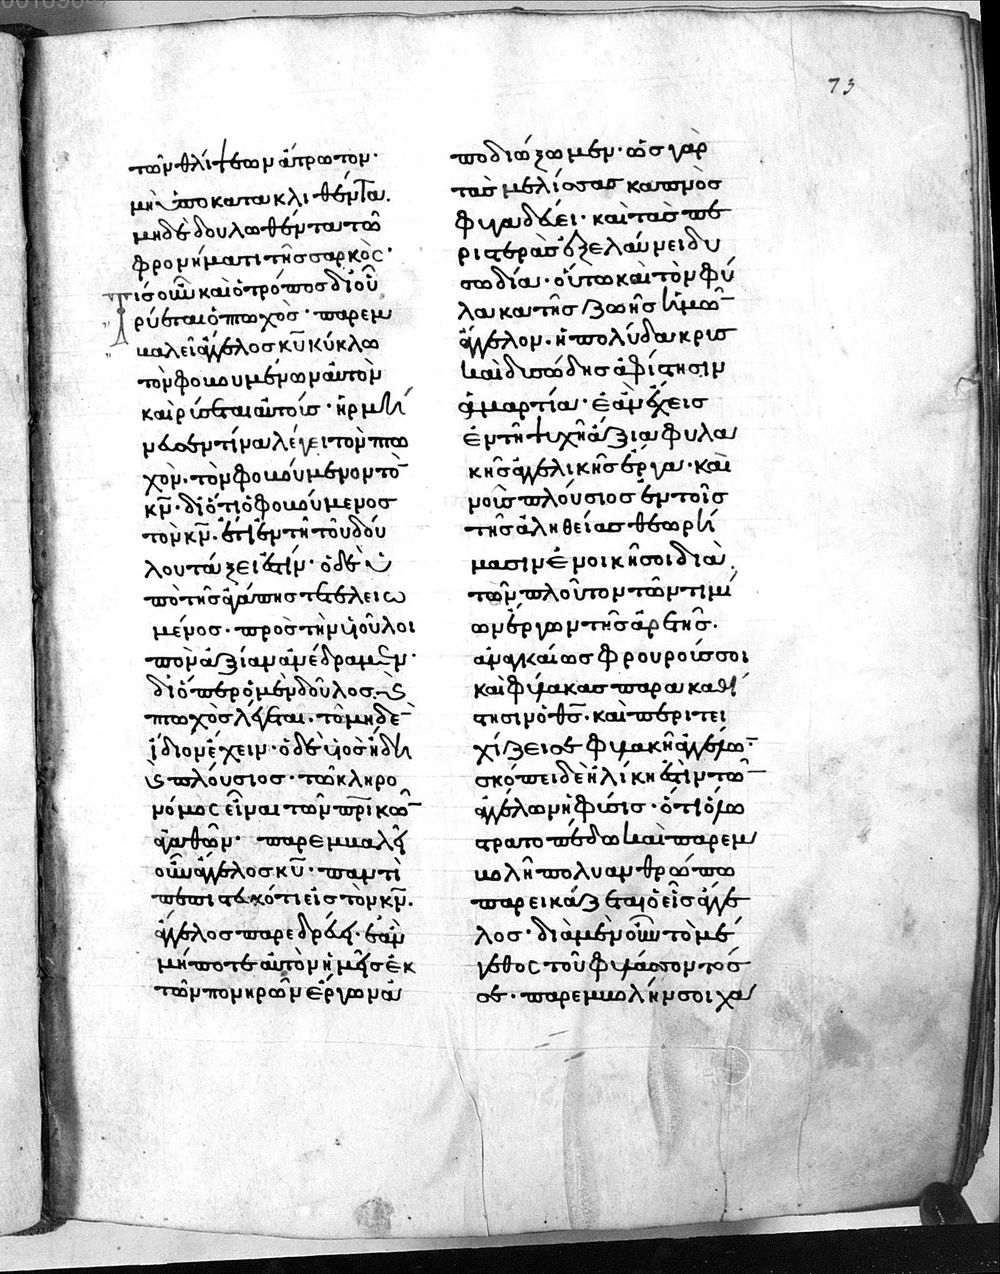 73
τῶν θλίψεων ἄπρωτον·
μὴ ὑποκατακλιθέντα.
μηδὲ δουλωθέντα τῶ
φρονήματι τῆς σαρκὸς·
Τίς οὖν καὶ ὁ τρόπος δι' οὗ
ῥύεται ὁ πτωχὸς· παρεμ
βαλεῖ ἄγγελος κυ κύκλω
τῶν φοβουμένων αὐτὸν
καὶ ῥύσεται αὐτούς· ἡρμή
νευσεν τίνα λέγει τὸν πτω
χὸν· τὸν φοβούμενον τὸν
κν· διότι ὁ φοβούμενος
τὸν κν. ἔτι ἐν τῆ τοῦ δού
λου τάξει ἐστίν· ὁ δὲ ὑ
πὸ τῆς ἀγάπης τετελειω
μένος· πρὸς τὴν υἱοῦ λοι
πὸν ἀξίαν ἀνέδραμεν·
διόπερ ὁ μὲν δοῦλος καὶ
πτωχὸς λέγεται· τῶ μηδὲν
ἴδιον ἔχειν· ὁ δὲ υἱὸς ἤδη
καὶ πλούσιος· τῶ κληρο
νόμος εἶναι τῶν πρικῶν
ἀγαθῶν· παρεμβαλεῖ
οὖν ἄγγελος κυ· παντὶ
πεπιστευκότι εἰς τὸν κν.
ἄγγελος παρεδρεύει· ἐὰν
μήποτε αὐτὸν ἡμεῖς ἐκ
τῶν πονηρῶν ἔργων ἀ
ποδιώξωμεν· ὡς γὰρ
τὰς μελίσσας καπνὸς
φυγαδεύει· καὶ τὰς πε
ριστερὰς ἐξελαύνει δυ
σωδία· οὕτω καὶ τὸν φύ
λακα τῆς ζωῆς ἡμῶν
ἄγγελον. ἡ πολύδακρυς
καὶ δυσώδης ἀφίστησιν
ἁμαρτία· ἐὰν ἔχεις
ἐν τῆ ψυχῆ ἄξια φυλα
κῆς ἀγγελικῆς ἔργα· καὶ
νοῦς πλούσιος ἐν τοῖς
τῆς ἀληθείας θεωρή
μασιν ἐνοικῆ σοι διὰ
τῶν πλοῦτον τῶν τιμί
ων ἔργων τῆς ἀρετῆς.
ἀναγκαίως φρουρούς σοι
καὶ φύλακας παρακαθί
στησιν ὁ θς· καὶ περιτει
χίζει σε φυλακῆ ἀγγέλων·
σκόπει δὲ ἡλίκη ἐστὶν τῶν
ἀγγέλων ἡ φύσις· ὅτι ὅλω
στρατοπέδω καὶ παρεμ
βολῆ πολυανθρώπω
παρεικάζεται ὁ εἷς ἄγγε
λος· διὰ μὲν οὖν τὸ μέ
γεθος τοῦ φυλάσσοντός
σε· παρεμβολήν σοι χα